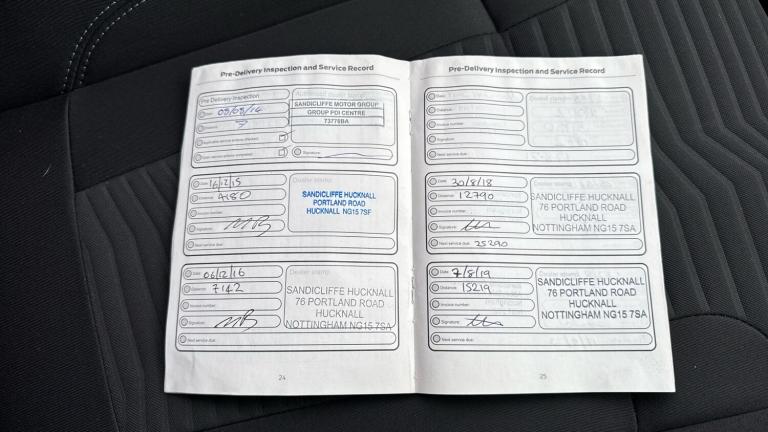 Pre-Delivery Inspection and Service Record
Pre Delivery Inspection
Date: 05/09/14
SANDICLIFFE MOTOR GROUP
GROUP PDI CENTRE
73778BA
Signature:
Date: 16/12/15
Distance: 4180
Invoice number:
Signature:
Next service due:
SANDICLIFFE HUCKNALL
PORTLAND ROAD
HUCKNALL NG15 7SF
Date: 06/12/16
Distance: 7142
Invoice number:
Signature:
Next service due:
Dealer stamp
SANDICLIFFE HUCKNALL
76 PORTLAND ROAD
HUCKNALL
NOTTINGHAM NG15 7SA
24
Pre-Delivery Inspection and Service Record
Date:
Distance:
Invoice number:
Signature:
Next service due:
Dealer stamp
Date: 30/8/18
Distance: 12790
Invoice number:
Signature:
Next service due: 25290
Dealer stamp
SANDICLIFFE HUCKNALL
76 PORTLAND ROAD
HUCKNALL
NOTTINGHAM NG15 7SA
Date: 7/8/19
Distance: 15219
Invoice number:
Signature:
Next service due:
Dealer stamp
SANDICLIFFE HUCKNALL
76 PORTLAND ROAD
HUCKNALL
NOTTINGHAM NG15 7SA
25